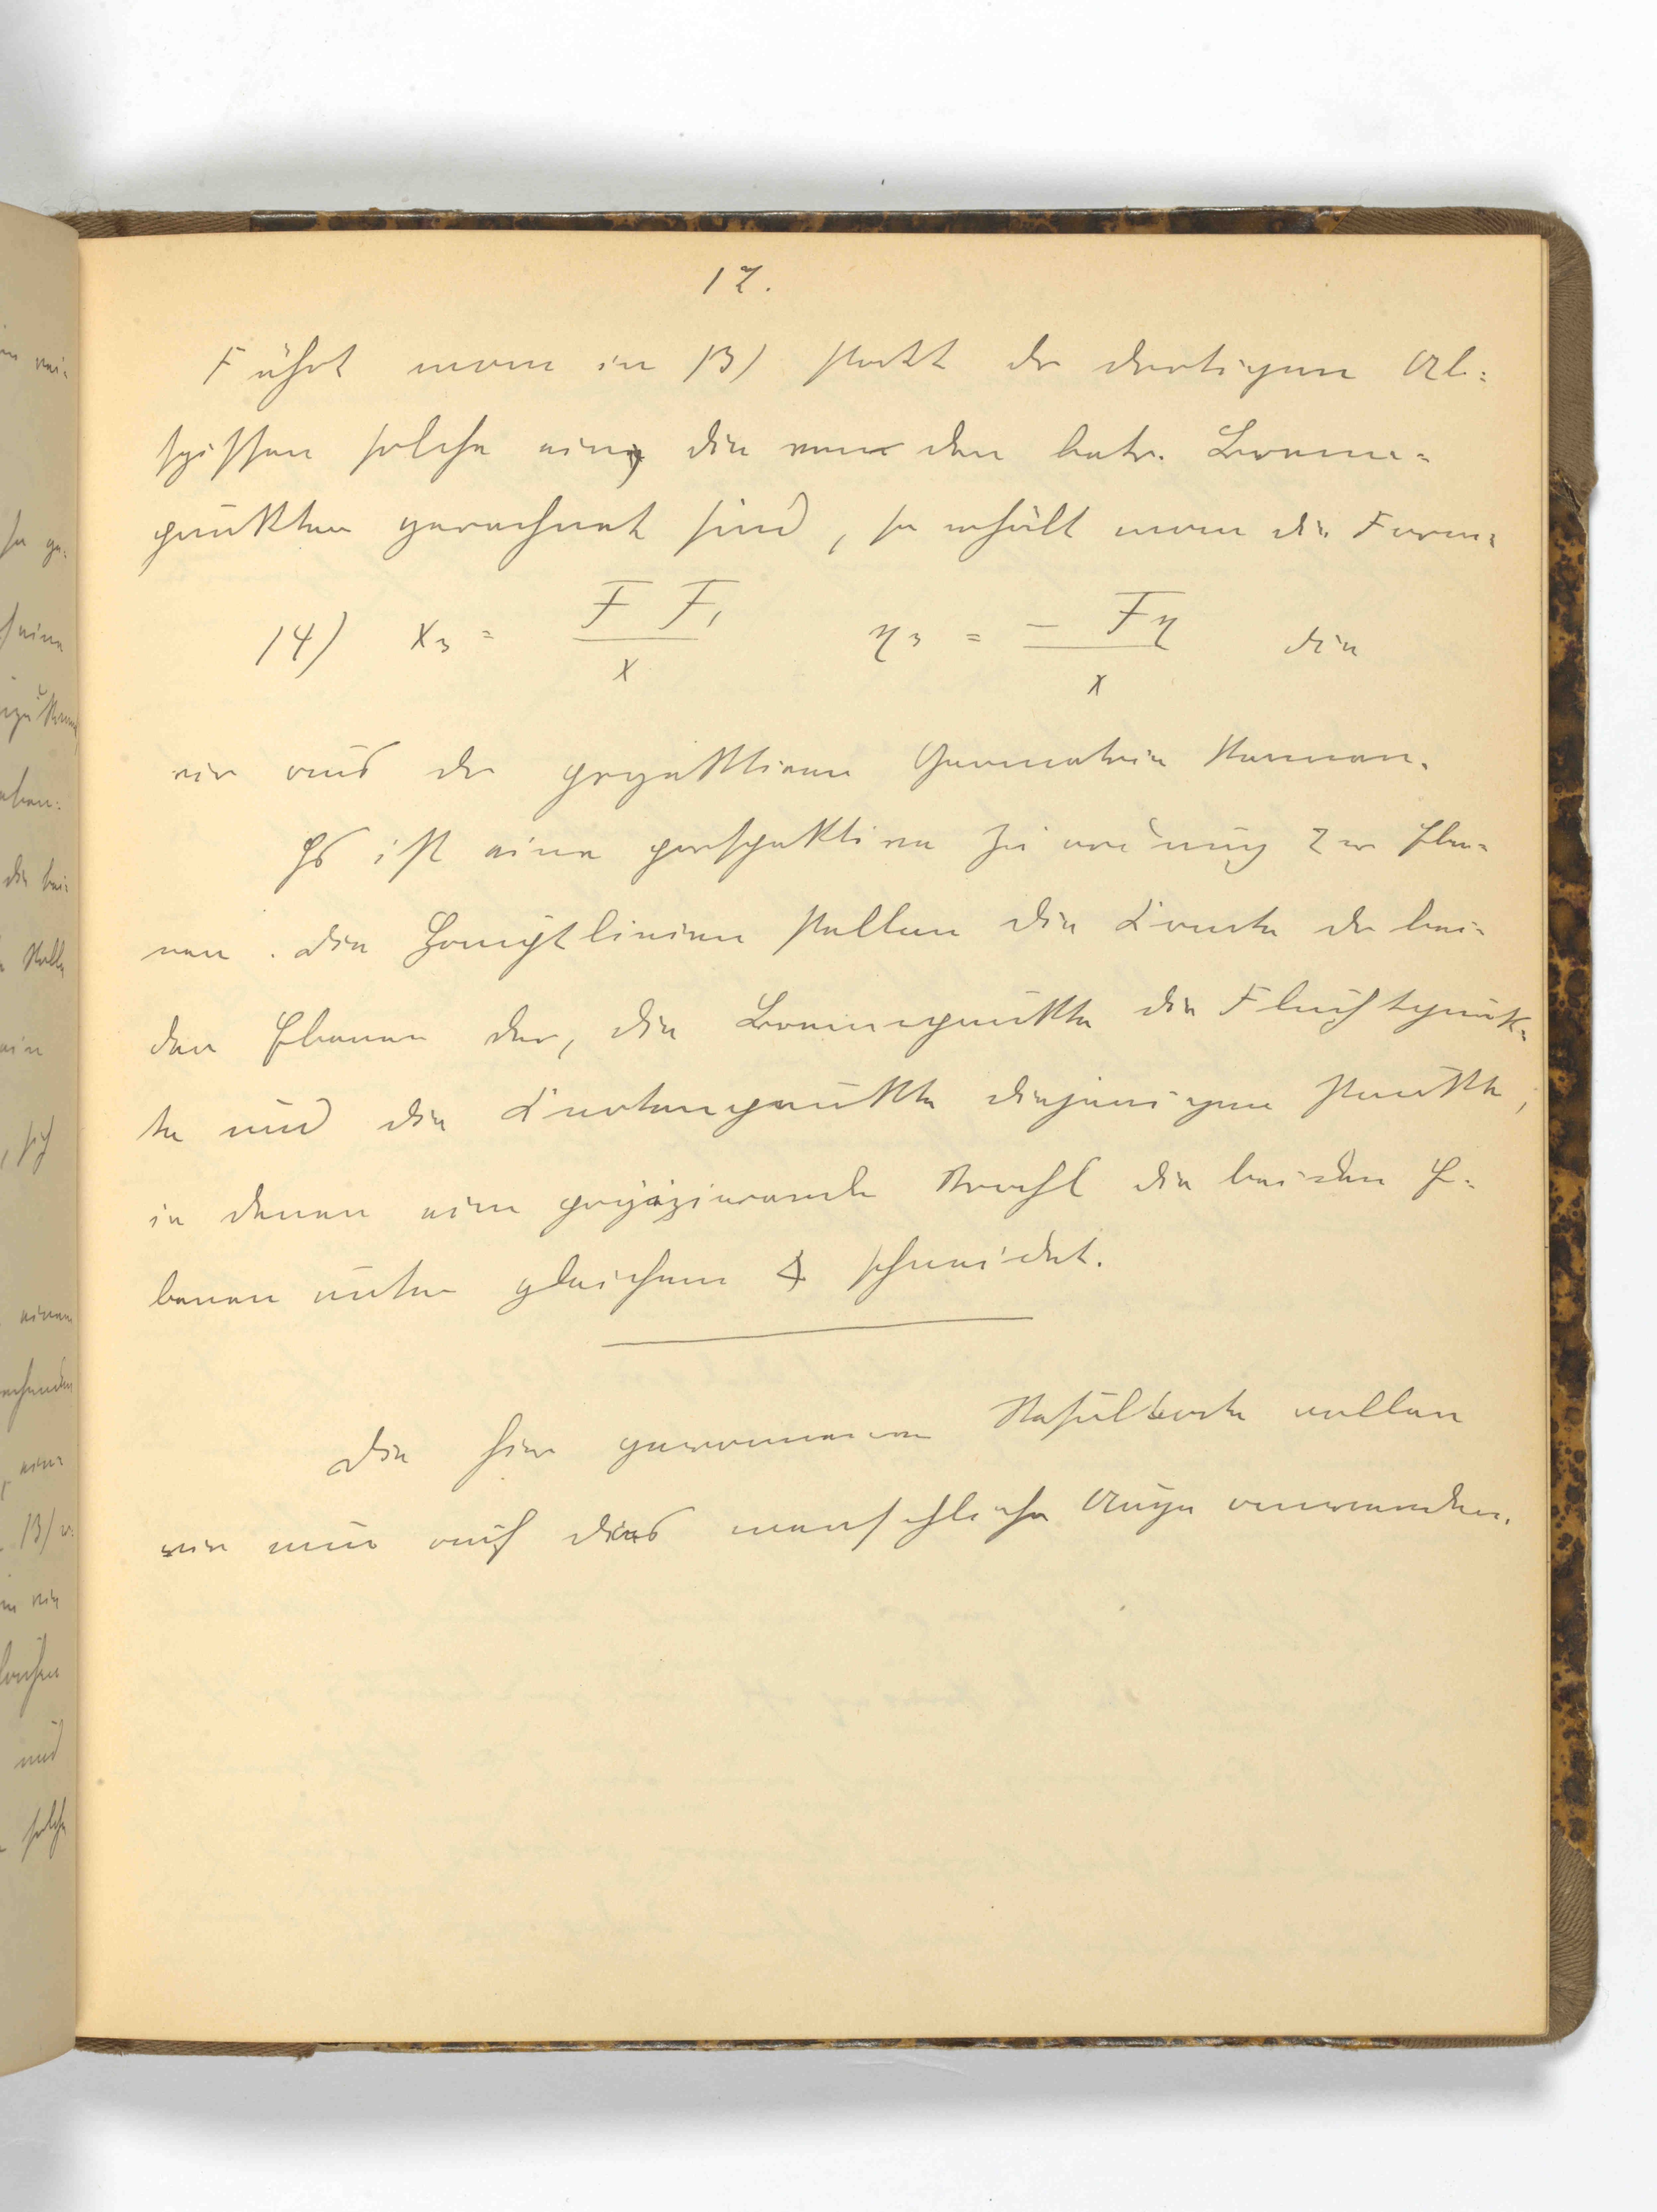 17.
Führt man in 13) statt der dortigen Ab=
szissen solche ein, die von den betr. Brenn=
punkten gerechnet sind, so erhält man die Form:
14) x₃ = F F₁ / x η₃ = − Fη / x die
wir aus der projektiven Geometrie kennen.
Es ist eine perspektive Zuordnung zw Ebe=
nen. Die Hauptlinien stellen die Kante der bei=
den Ebenen dar, die Brennpunkte die Fluchtpunk=
te und die Knotenpunkte diejenigen Punkte,
in denen ein projizierender Strahl die beiden E=
benen unter gleichem ∢ schneidet.
Die hier gewonnenen Resultate wollen
wir nun auf das menschliche Auge anwenden.